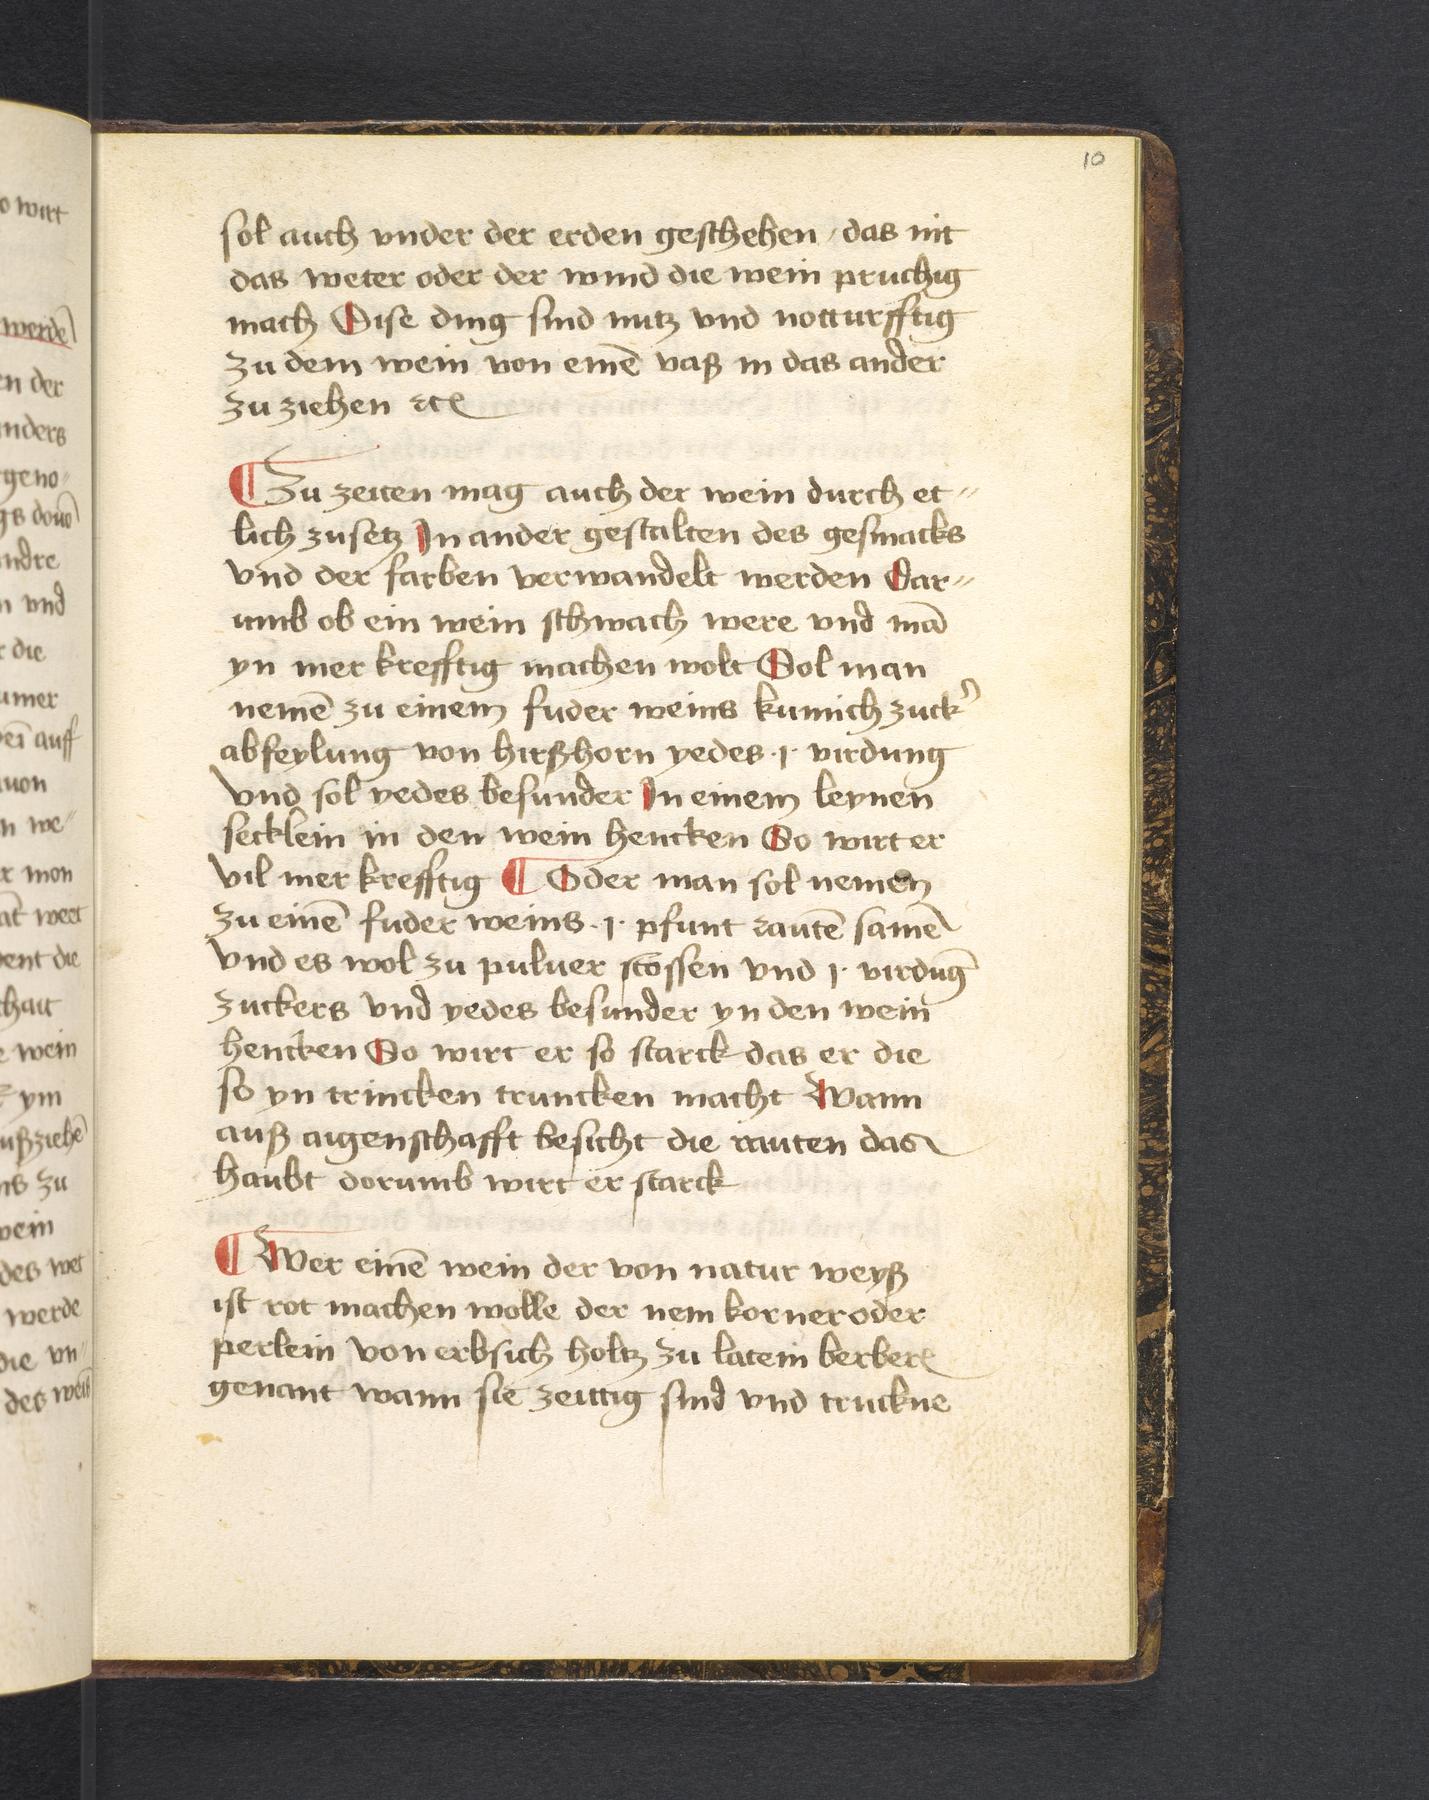 10
o wirt
werdē
en der
anders
geno⸗
gs douō
andre
n vnd
r die
umer
auff
uon
n we⸗
er mon
wert
ent die
chait
e wein
ym
ußziehē
ns zu
wein
des wet
werde
die vn⸗
des wein
sol auch vnder der erden geschehen / das nit
das weter oder der wind die wein pruchig
mach Dise ding sind nutz vnd notturfftig
zu dem wein von einē vaß in das ander
zu ziehen ꝛcꝭ
¶ Zu zeiten mag auch der wein durch et⸗
lich zusetz In ander gestalten des gesmacks
vnd der farben verwandelt werden Dar⸗
umb ob ein wein schwach were vnd mā
yn mer krefftig machen wolt Sol man
nemē zu einem fuder weins kumich zuck᾽
abfeylung von hirßhorn yedes ·1· virdung
vnd sol yedes besunder In einem leynen
secklein in den wein hencken So wirt er
vil mer krefftig ¶ Oder man sol nemen
zu einē fuder weins ·1· pfunt rautē samē
vnd es wol zu puluer stossen vnd 1· virdūg
zuckers vnd yedes besunder yn den wein
hencken So wirt er so starck das er die
so yn trincken truncken macht Wann
auß aigenschafft besicht die rauten das
haubt dorumb wirt er starck
¶ Wer einē wein der von natur weyß
ist rot machen wolle der nem korner oder
perlein von erbsich holtz zu latein berberꝭ
genant wann sie zeittig sind vnd truckne